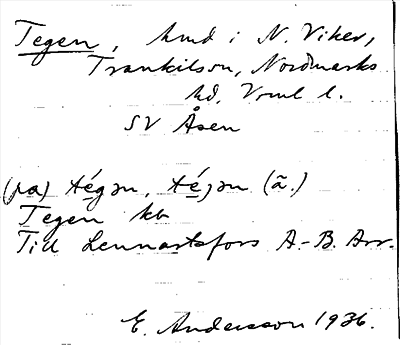 Tegen, hmd i N. Viker,
Trankilsn, Nordmarks
hd, Vrml l.
SV Åsen
(på) tégən, téjən (ã.)
Tegen kb
Till Lennartsfors A.-B. Arr.
E. Andersson 1936.